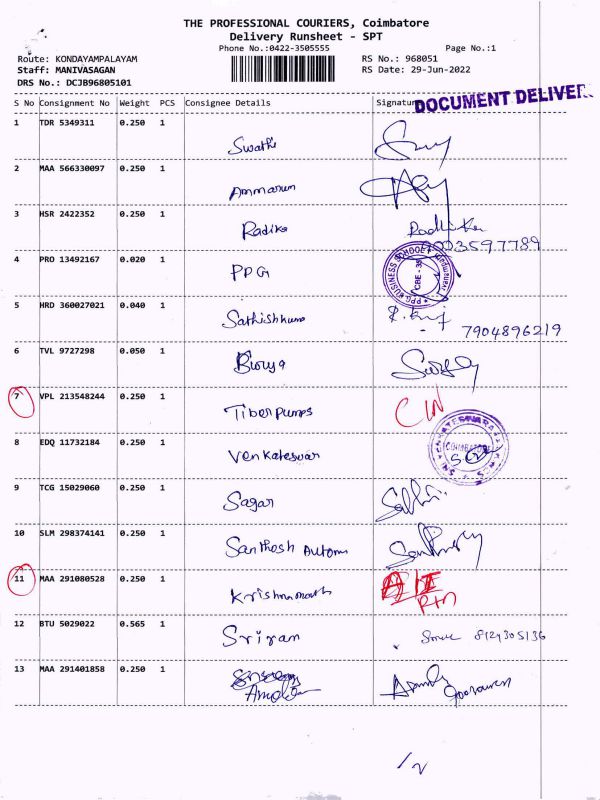 THE PROFESSIONAL COURIERS, Coimbatore
Delivery Runsheet - SPT
Phone No.:0422-3505555
Page No.:1
Route: KONDAYAMPALAYAM
RS No.: 968051
Staff: MANIVASAGAN
RS Date: 29-Jun-2022
DRS No.: DCJB96805101
DOCUMENT DELIVER
S No Consignment No Weight PCS Consignee Details Signature
1 TDR 5349311 0.250 1 Swathi
2 MAA 566330097 0.250 1 Ammarun
3 HSR 2422352 0.250 1 Radika Radhika
4 PRO 13492167 0.020 1 PPG
PPG BUSINESS SCHOOL
CBE - 35
5 HRD 360027021 0.040 1 Sathishkumar
7904896219
6 TVL 9727298 0.050 1
7 VPL 213548244 0.250 1 Tiber pumps C/N
8 EDQ 11732184 0.250 1 Venkateswar
COIMBATORE
9 TCG 15029060 0.250 1 Sagar
10 SLM 298374141 0.250 1 Santhosh Automa
11 MAA 291080528 0.250 1
12 BTU 5029022 0.565 1 Sriram 8124305136
13 MAA 291401858 0.250 1
1/2